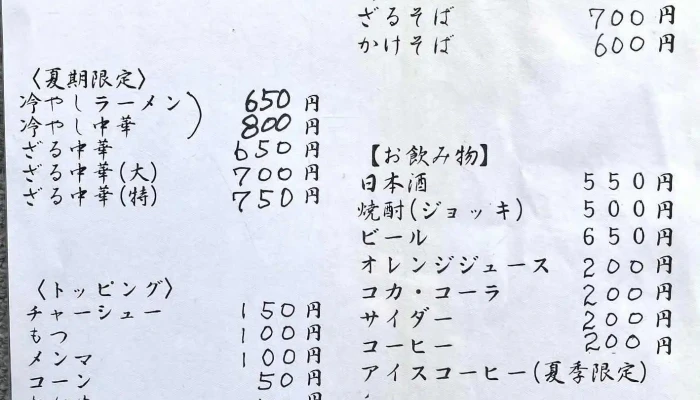 〈夏期限定〉
冷やしラーメン) 650円
冷やし中華 800円
ざる中華 650円
ざる中華(大) 700円
ざる中華(特) 750円
〈トッピング〉
チャーシュー 150円
もつ 100円
メンマ 100円
コーン 50円
ざるそば 700円
かけそば 600円
【お飲み物】
日本酒 550円
焼酎(ジョッキ) 500円
ビール 650円
オレンジジュース 200円
コカ・コーラ 200円
サイダー 200円
コーヒー 200円
アイスコーヒー(夏季限定)